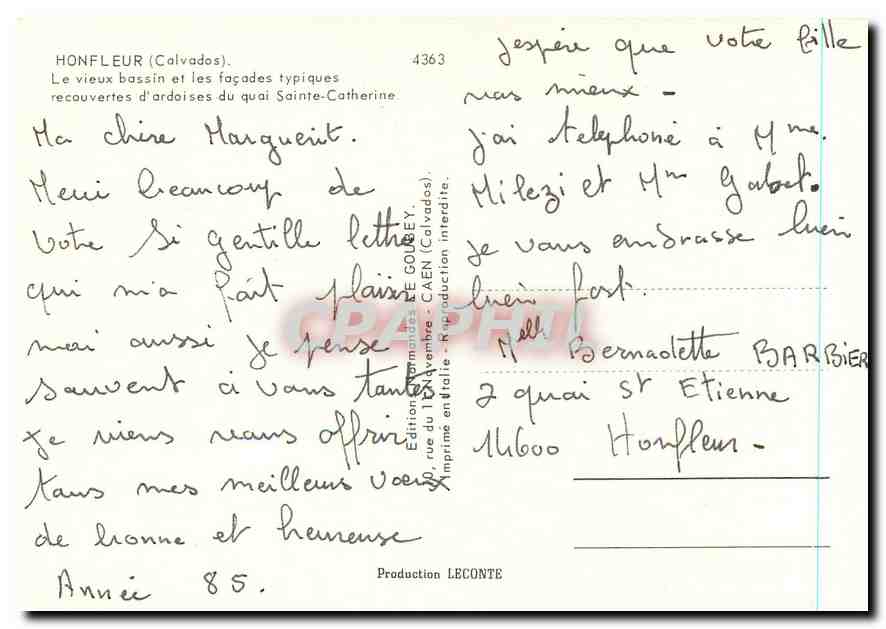 HONFLEUR (Calvados).
Le vieux bassin et les façades typiques
recouvertes d'ardoises du quai Sainte-Catherine.
4363
Ma chère Marguerit.
Merci beaucoup de
votre si gentille lettre
qui m'a fait plaisir
moi aussi je pense
souvent à vous toutes
Je viens vous offrir
tous mes meilleurs voeux
de bonne et heureuse
Année 85.
Editions Normandes LE GOUBEY.
, rue du 11 Novembre - CAEN (Calvados).
Imprimé en Italie - Reproduction interdite.
J'espère que votre fille
vas mieux -
J'ai telephoné à Mme.
Milezi et Mme Gabet.
Je vous embrasse bien
bien fort.
Melle Bernadette BARBIER
2 quai St Etienne
14600 Honfleur -
Production LECONTE
CPAPHIL